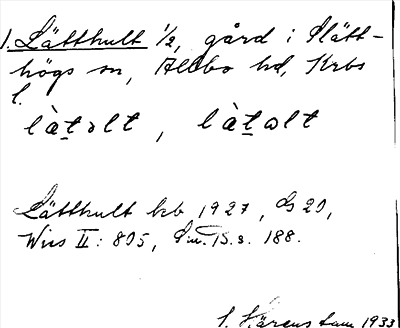 1. Lätthult 1/2, gård i Slätt-
högs sn, Allbo hd, Krbs
l.
làt̲ɔlt, làt̲ωlt
Lätthult krb 1927, GS 20,
Wies II: 805, Sm. 15.3. 188.
S. Kärens tam 1933